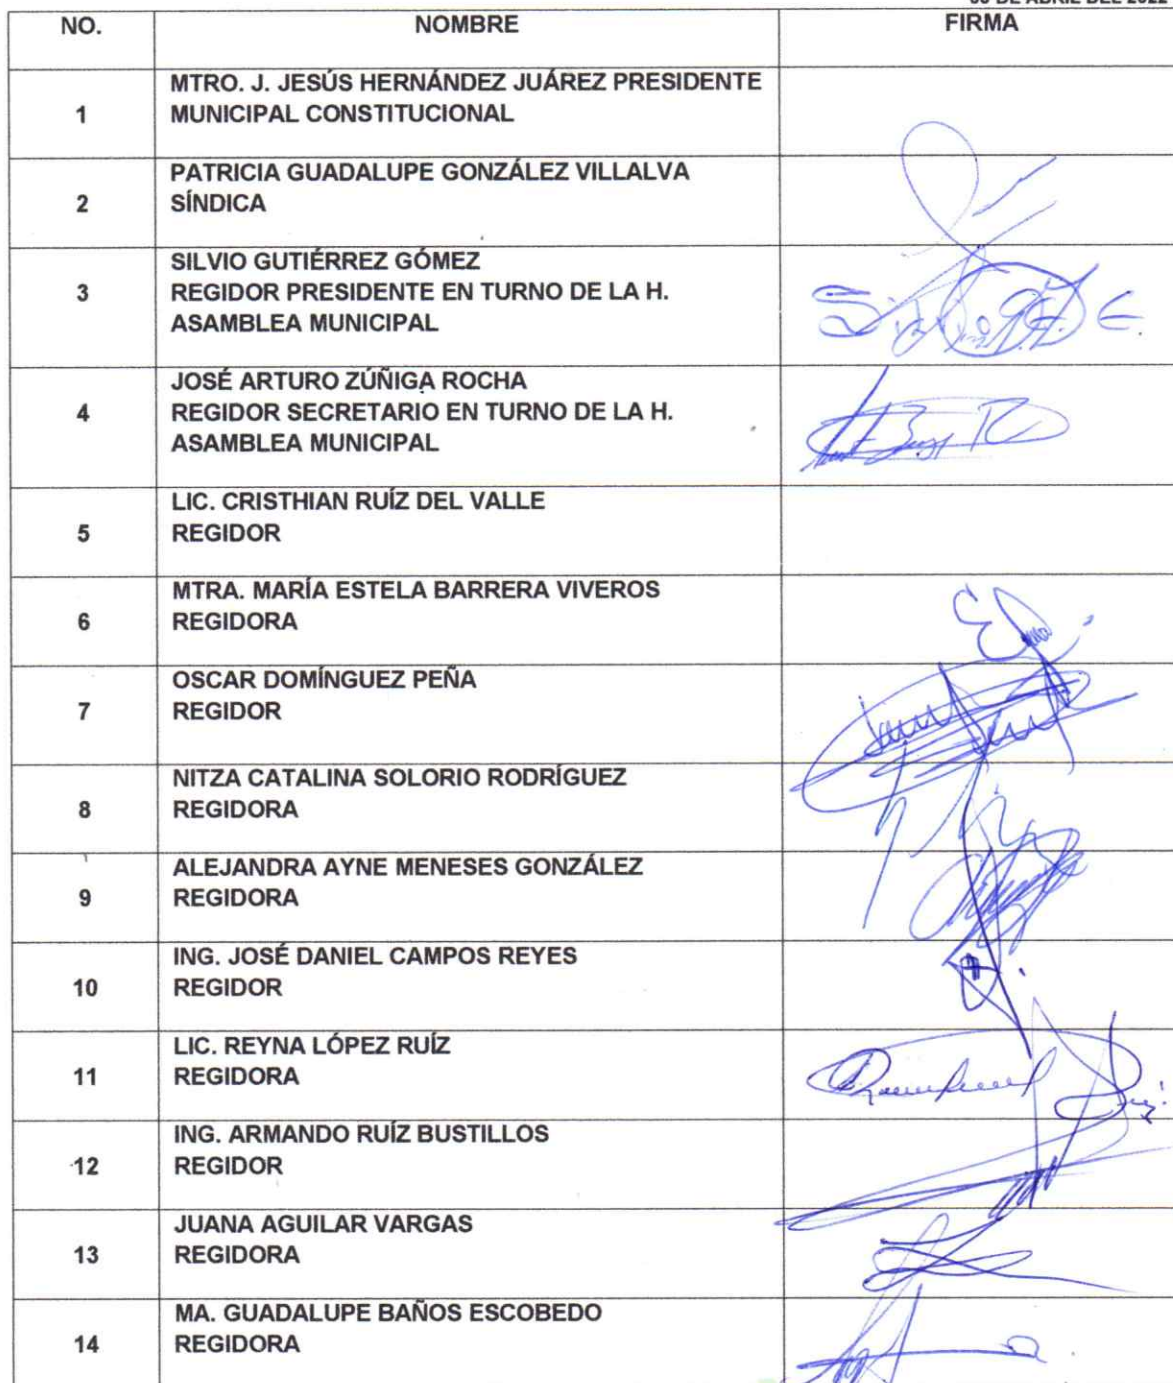 DE ABRIL DEL 2022
NO. NOMBRE FIRMA
MTRO. J. JESÚS HERNÁNDEZ JUÁREZ PRESIDENTE
1 MUNICIPAL CONSTITUCIONAL
PATRICIA GUADALUPE GONZÁLEZ VILLALVA
2 SÍNDICA
SILVIO GUTIÉRREZ GÓMEZ
3 REGIDOR PRESIDENTE EN TURNO DE LA H.
ASAMBLEA MUNICIPAL
JOSÉ ARTURO ZÚÑIGA ROCHA
4 REGIDOR SECRETARIO EN TURNO DE LA H.
ASAMBLEA MUNICIPAL
LIC. CRISTHIAN RUÍZ DEL VALLE
5 REGIDOR
MTRA. MARÍA ESTELA BARRERA VIVEROS
6 REGIDORA
OSCAR DOMÍNGUEZ PEÑA
7 REGIDOR
NITZA CATALINA SOLORIO RODRÍGUEZ
8 REGIDORA
ALEJANDRA AYNE MENESES GONZÁLEZ
9 REGIDORA
ING. JOSÉ DANIEL CAMPOS REYES
10 REGIDOR
LIC. REYNA LÓPEZ RUÍZ
11 REGIDORA
ING. ARMANDO RUÍZ BUSTILLOS
12 REGIDOR
JUANA AGUILAR VARGAS
13 REGIDORA
MA. GUADALUPE BAÑOS ESCOBEDO
14 REGIDORA